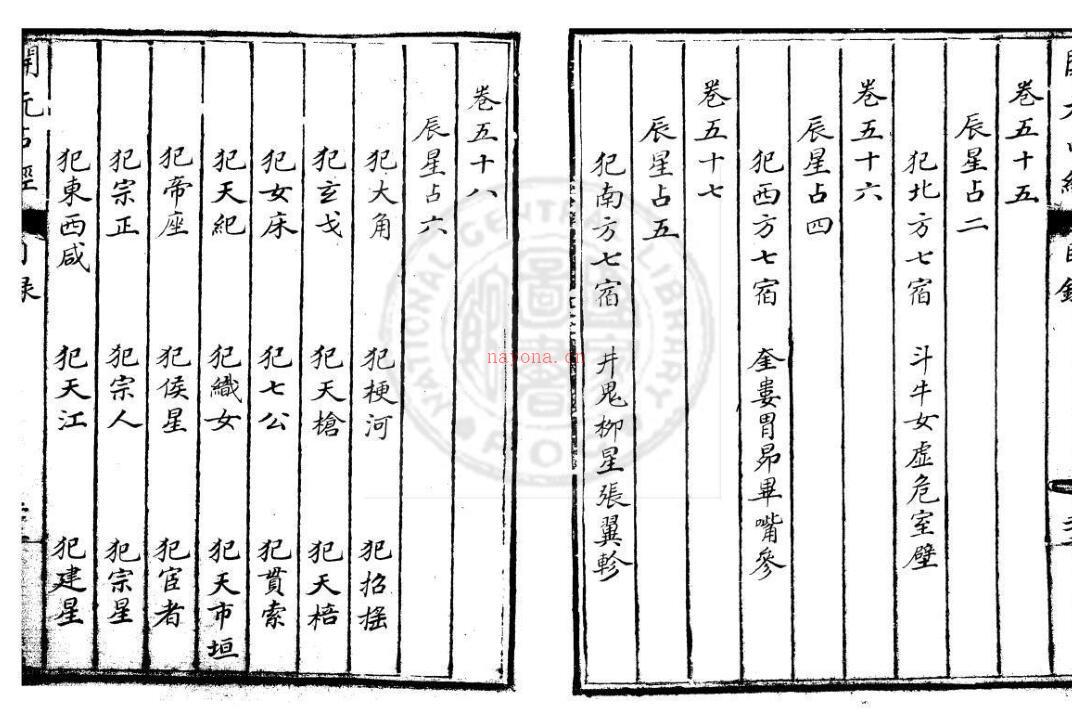 卷五十五
辰星占二
犯北方七宿 斗牛女虛危室壁
卷五十六
辰星占四
犯西方七宿 奎婁胃昴畢嘴參
卷五十七
辰星占五
犯南方七宿 井鬼柳星張翼軫
卷五十八
辰星占六
犯大角 犯梗河 犯招搖
犯玄戈 犯天槍 犯天棓
犯女床 犯七公 犯貫索
犯天紀 犯織女 犯天市垣
犯帝座 犯侯星 犯宦者
犯宗正 犯宗人 犯宗星
犯東西咸 犯天江 犯建星
開元占經
目錄
NATIONAL CENTRAL LIBRARY
nayona.cn